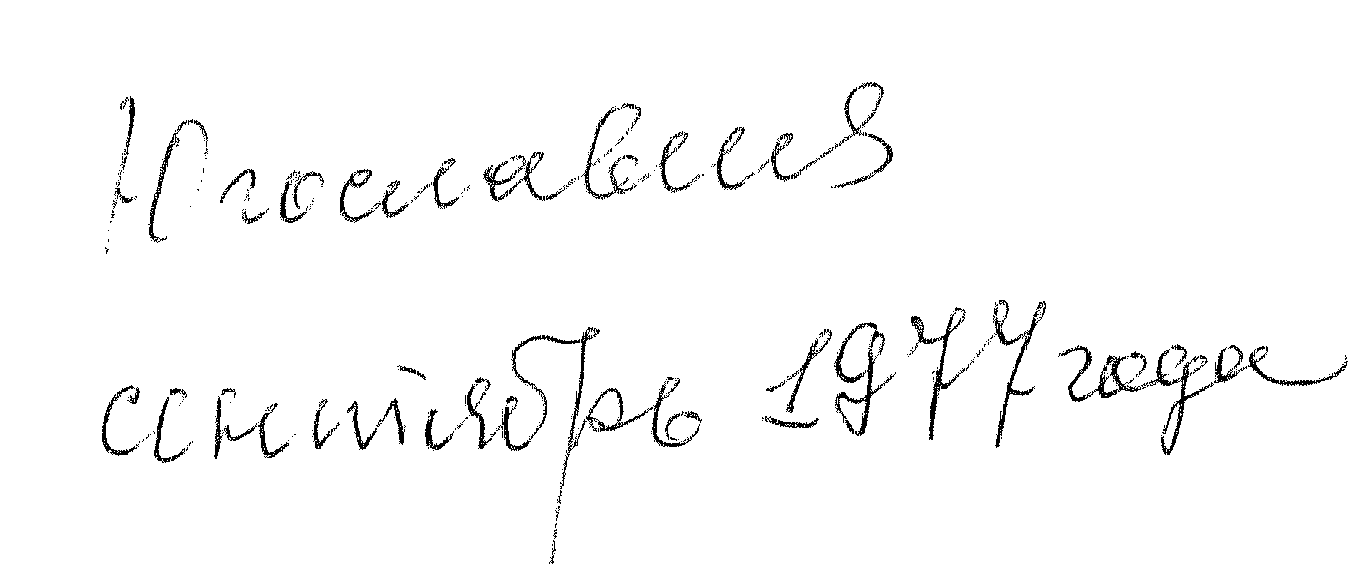 Югославия
сентябрь 1977 года